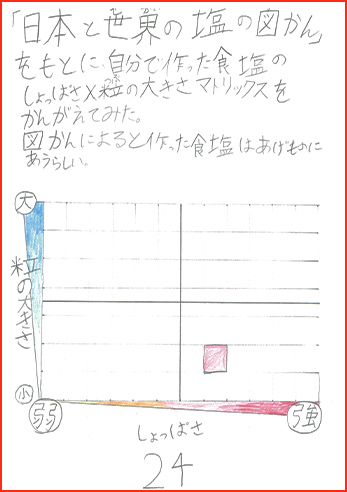 「日本と世界の塩の図かん」
をもとに、自分で作った食塩の
しょっぱさ×粒の大きさマトリックスを
かんがえてみた。
図かんによると作った食塩はあげものに
あうらしい。
大
粒の大きさ
小
弱
強
しょっぱさ
24